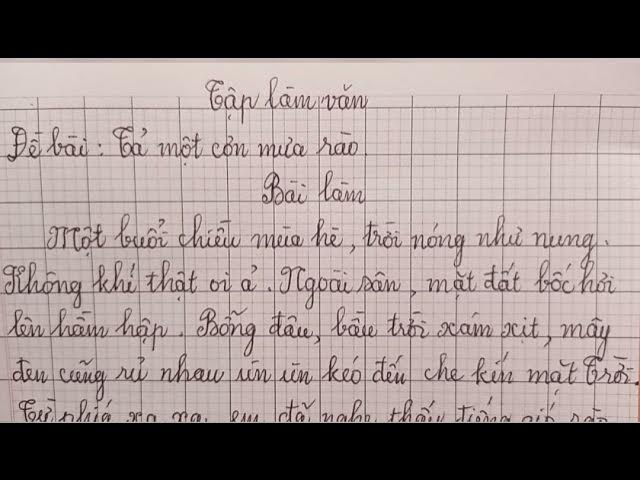 Tập làm văn
Đề bài : Tả một cơn mưa rào
Bài làm
Một buổi chiều mùa hè, trời nóng như nung.
Không khí thật oi ả. Ngoài sân, mặt đất bốc hơi
lên hầm hập. Bỗng đâu, bầu trời xám xịt, mây
đen cũng rủ nhau ùn ùn kéo đến che kín mặt trời.
Từ phía xa xa, em đã nghe thấy tiếng gió